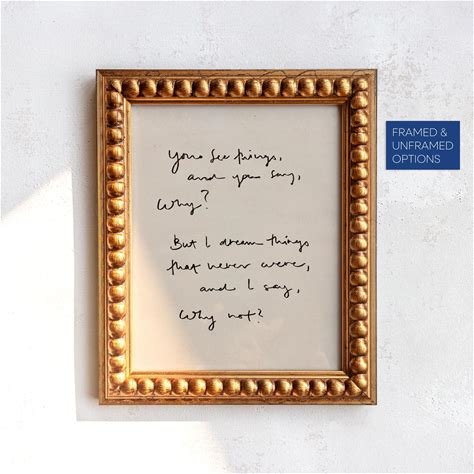 You see things,
and you say,
Why?
But I dream things
that never were,
and I say,
Why not?
FRAMED &
UNFRAMED
OPTIONS